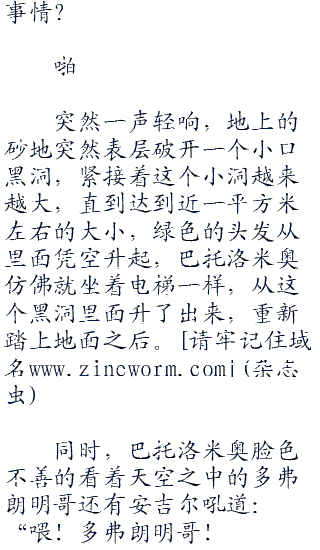 事情？
啪
突然一声轻响，地上的
砂地突然表层破开一个小口
黑洞，紧接着这个小洞越来
越大，直到达到近一平方米
左右的大小，绿色的头发从
里面凭空升起，巴托洛米奥
仿佛就坐着电梯一样，从这
个黑洞里面升了出来，重新
踏上地面之后。[请牢记住域
名www.zincworm.com|(杂志
虫)
同时，巴托洛米奥脸色
不善的看着天空之中的多弗
朗明哥还有安吉尔吼道：
“喂！多弗朗明哥！